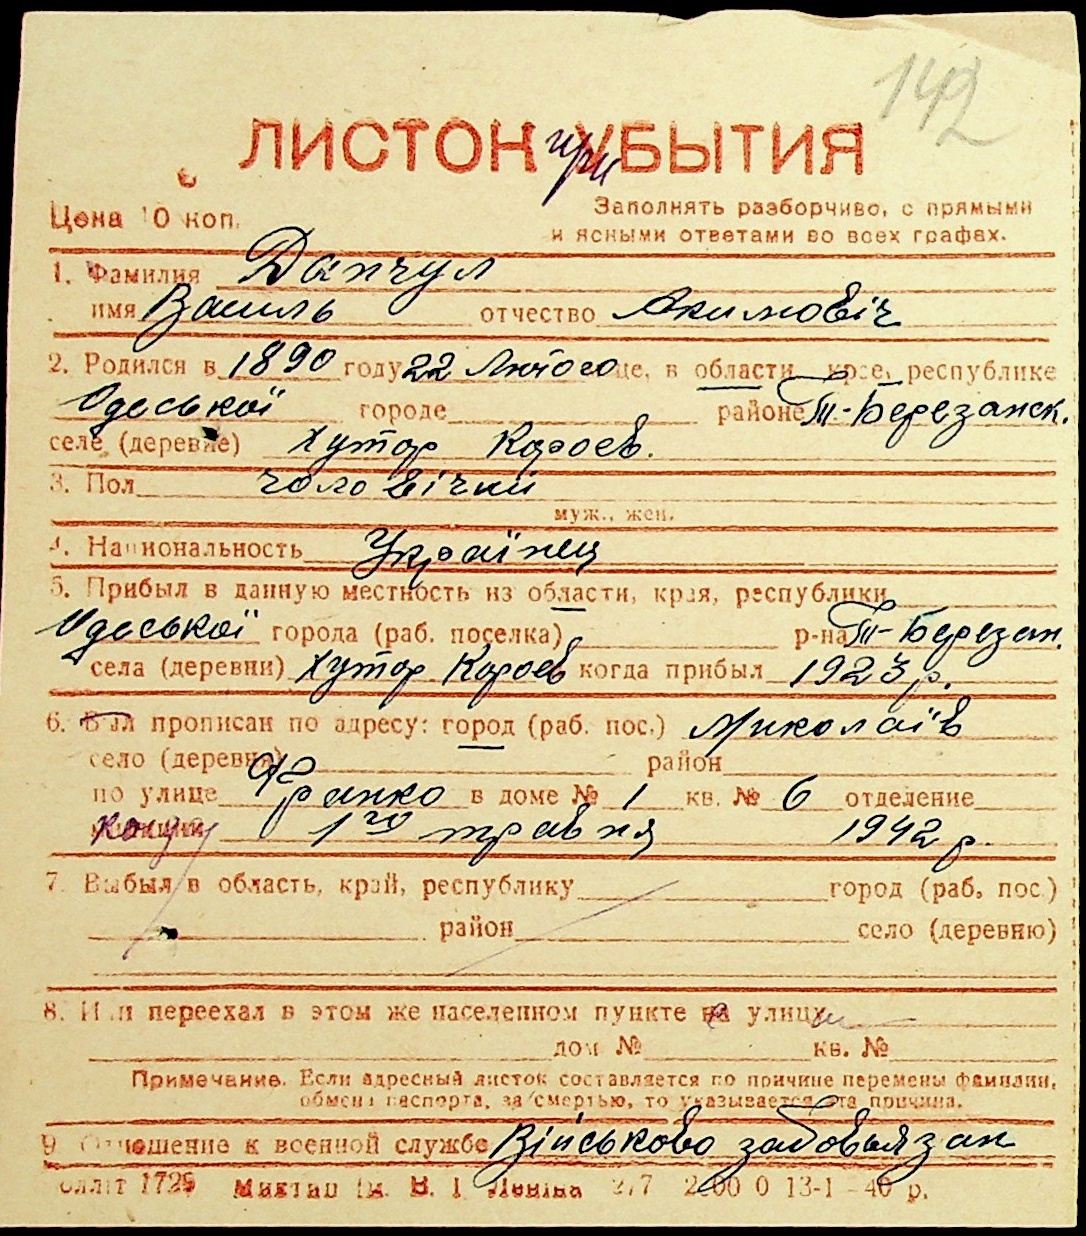 142
ЛИСТОК при УБЫТИЯ
Цена 10 коп.
Заполнять разборчиво, с прямыми
и ясными ответами во всех графах.
1. Фамилия Дапчул
имя Василь отчество Акимовіч
2. Родился в 1890 году 22 Лютого це, в области, крае, республике
Одеської городе районе Т-Березанск.
селе (деревне) Хутор Короєв.
3. Пол чоловічий
муж., жен.
4. Национальность Українец
5. Прибыл в данную местность из области, края, республики
Одеської города (раб. поселка) р-на Т-Березан.
села (деревни) Хутор Короєв когда прибыл 1923 р.
6. Был прописан по адресу: город (раб. пос.) Миколаїв
село (деревня) район
по улице Франко в доме № 1 кв. № 6 отделение
1го травня 1942 р.
7. Выбыл в область, край, республику город (раб. пос.)
район село (деревню)
8. Или переехал в этом же населенном пункте на улицу
дом № кв. №
Примечание. Если адресный листок составляется по причине перемены фамилии,
обмена паспорта, за смертью, то указывается эта причина.
9. Отношение к военной службе Військово забовьязан
1729 им. В. І. Леніна 13-1-40 р.